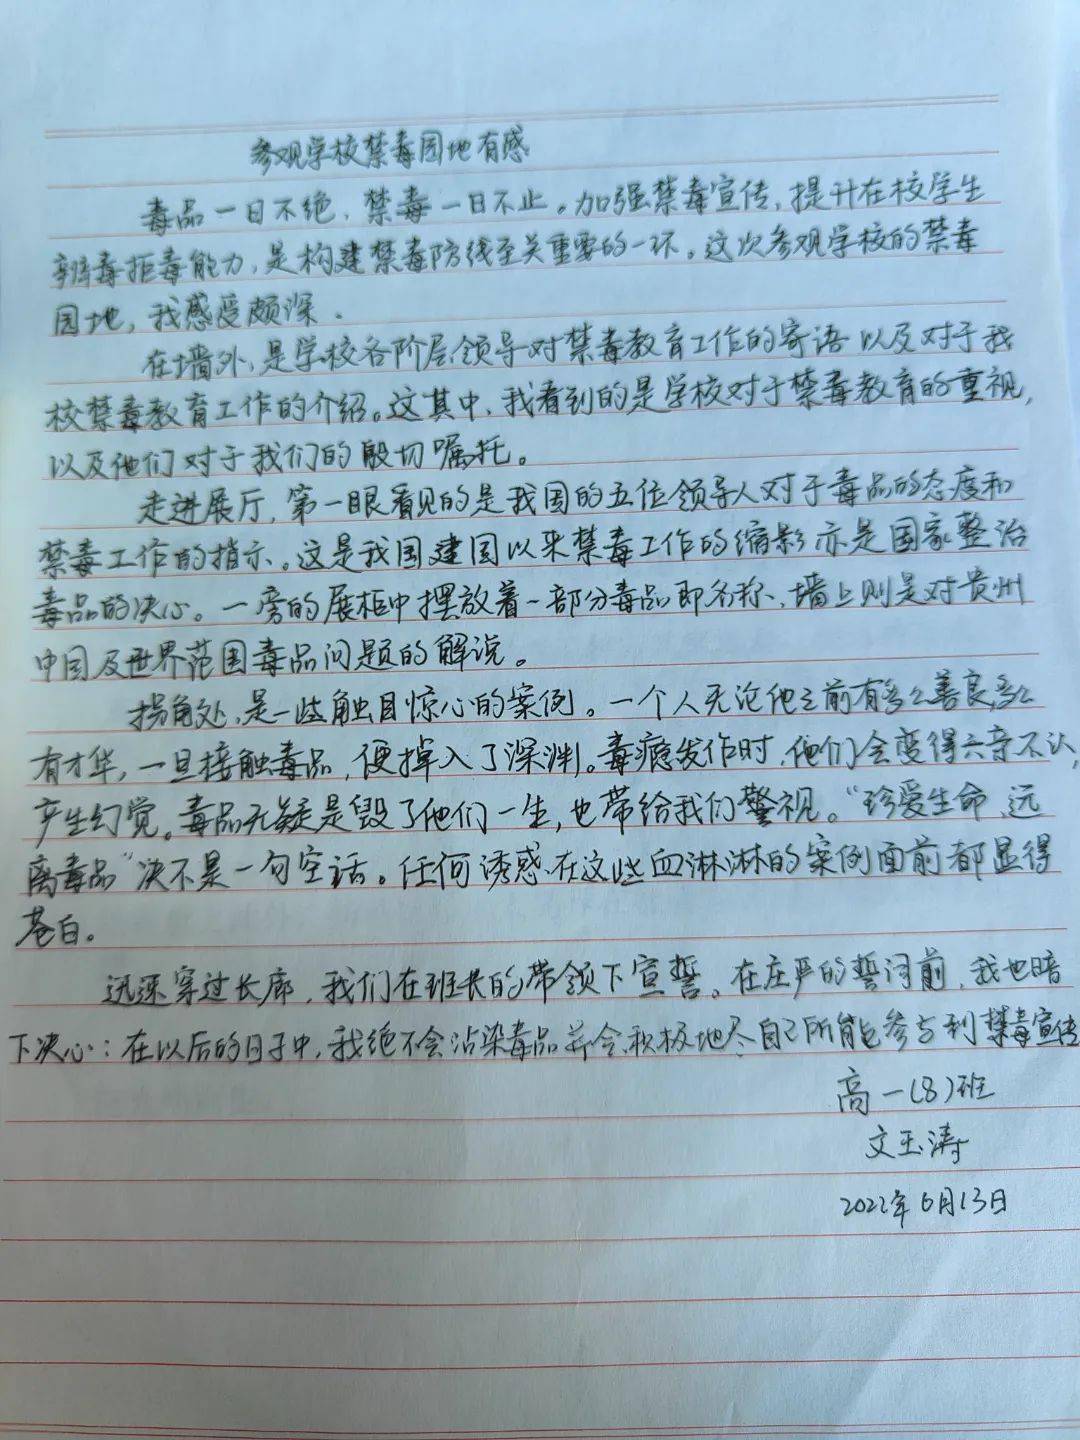 参观学校禁毒园地有感
毒品一日不绝，禁毒一日不止。加强禁毒宣传，提升在校学生
辨毒拒毒能力，是构建禁毒防线至关重要的一环。这次参观学校的禁毒
园地，我感受颇深．
在墙外，是学校各阶层领导对禁毒教育工作的寄语以及对于我
校禁毒教育工作的介绍。这其中，我看到的是学校对于禁毒教育的重视，
以及他们对于我们的殷切嘱托。
走进展厅，第一眼看见的是我国的五位领导人对于毒品的态度和
禁毒工作的指示。这是我国建国以来禁毒工作的缩影亦是国家整治
毒品的决心。一旁的展柜中摆放着一部分毒品即名称、墙上则是对贵州
中国及世界范围毒品问题的解说。
拐角处，是一些触目惊心的案例。一个人无论他之前有多么善良，多么
有才华，一旦接触毒品，便掉入了深渊。毒瘾发作时，他们会变得六亲不认，
产生幻觉。毒品无疑是毁了他们一生，也带给我们警视。“珍爱生命，远
离毒品”决不是一句空话。任何诱惑在这些血淋淋的案例面前都显得
苍白。
迅速穿过长廊，我们在班长的带领下宣誓。在庄严的誓词前，我也暗
下决心：在以后的日子中，我绝不会沾染毒品并会积极地尽自己所能参与到禁毒宣传
高一（8）班
文玉涛
2022年6月13日